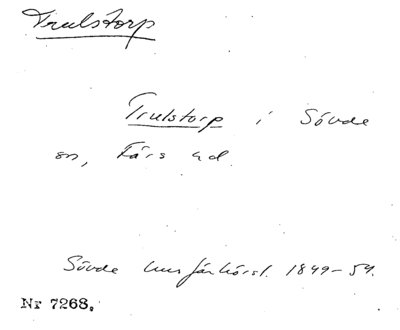 Trulstorp
Trulstorp i Sövde
sn, Färs hd.
Sövde husförhörsl. 1849-59.
Nr 7268.